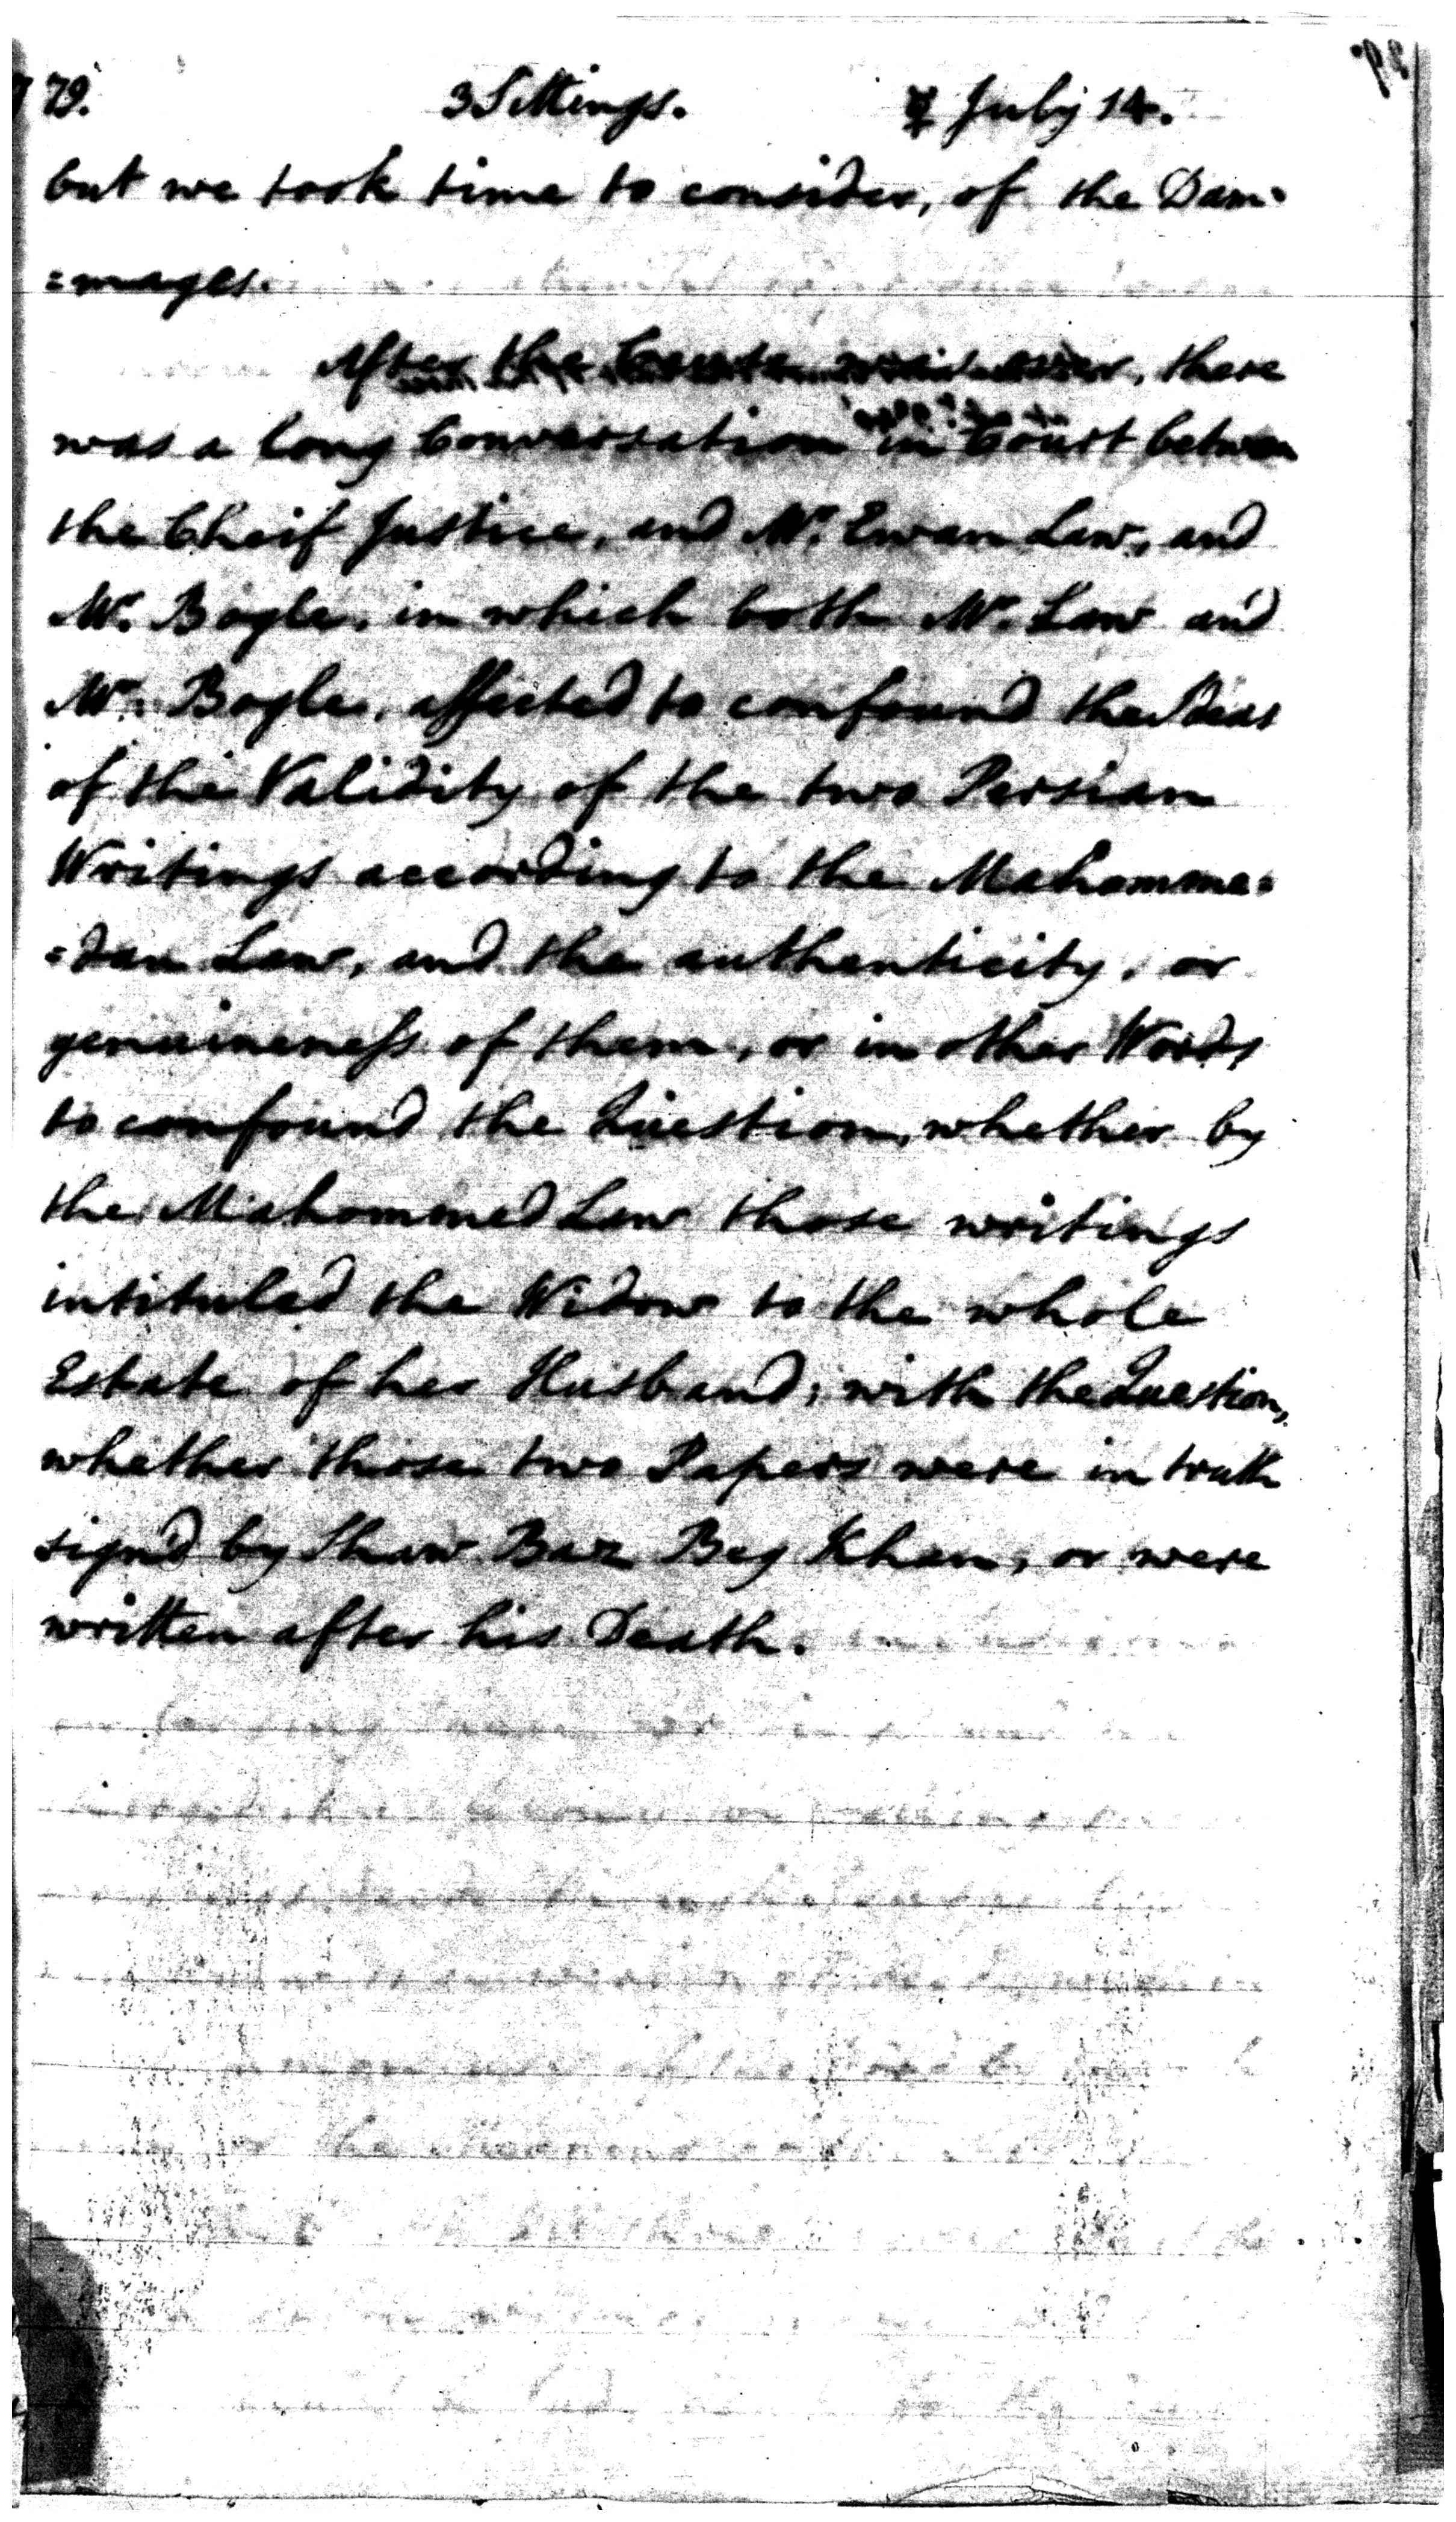 79. 3 Sittings. ☿ July 14.
but we took time to consider, of the Dam=
=mages.
After the Court was over, there
was a long Conversation in Court between
the Cheif Justice, and Mr. Ewan Law, and
Mr. Bogle, in which both Mr. Law and
Mr. Bogle, affected to confound the Ideas
of the Validity of the two Persian
Writings according to the Mahomme=
=dan Law, and the authenticity, or
genuineness of them, or in other Words
to confound the Question, whether by
the Mahommed Law those writings
intituled the Widow to the whole
Estate of her Husband; with the Question,
whether those two Papers were in truth
sign'd by Shaw Baz Beg Khan, or were
written after his Death.